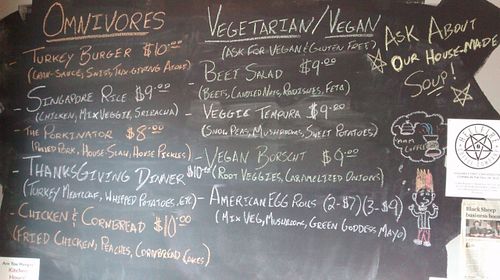 OMNIVORES
- TURKEY BURGER $10.00
- SINGAPORE RICE $9.00
(CHICKEN, MIX VEGGIE, SRIRACHA)
- THE PORKINATOR $8.00
(PULLED PORK, HOUSE-SLAW, HOUSE PICKLES)
- THANKSGIVING DINNER $10.00
(TURKEY MEATLOAF, WHIPPED POTATOES, ETC)
- CHICKEN & CORNBREAD $10.00
(FRIED CHICKEN, PEACHES, CORNBREAD CAKES)
VEGETARIAN/VEGAN
(ASK FOR VEGAN & GLUTEN FREE)
- BEET SALAD $9.00
(BEETS, CANDIED NUTS, RADISHES, FETA)
- VEGGIE TEMPURA $9.00
(SNOW PEAS, MUSHROOMS, SWEET POTATOES)
- VEGAN BORSCHT $9.00
(ROOT VEGGIES, CARAMELIZED ONIONS)
- AMERICAN EGG ROLLS (2-$7)(3-$9)
(MIX VEG, MUSHROOMS, GREEN GODDESS MAYO)
ASK ABOUT
OUR HOUSE-MADE
SOUP!
MMM
COFFEE
Black Sheep
Are You Hungry?
Kitchen
Hours